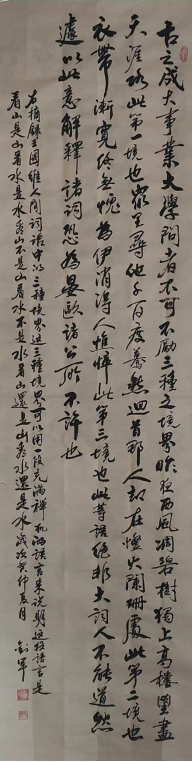 古之成大事業大學問者不可不勵三種之境界昨夜西風凋碧樹獨上高樓望盡
天涯路此第一境也衆里尋他千百度驀然迴首那人却在燈火闌珊處此第二境也
衣帶漸寬終無愧為伊消得人憔悴此第三境也此等語絕非大詞人不能道然
遽以此意解釋諸詞恐為晏歐諸公所不許也
右摘錄王國維人間詞話中的三種境界這三種境界可以用一段充滿禪機的語言來說明這段語言是
看山是山看水是水看山不是山看水不是水看山還是山看水還是水歲次癸卯夏月 軍